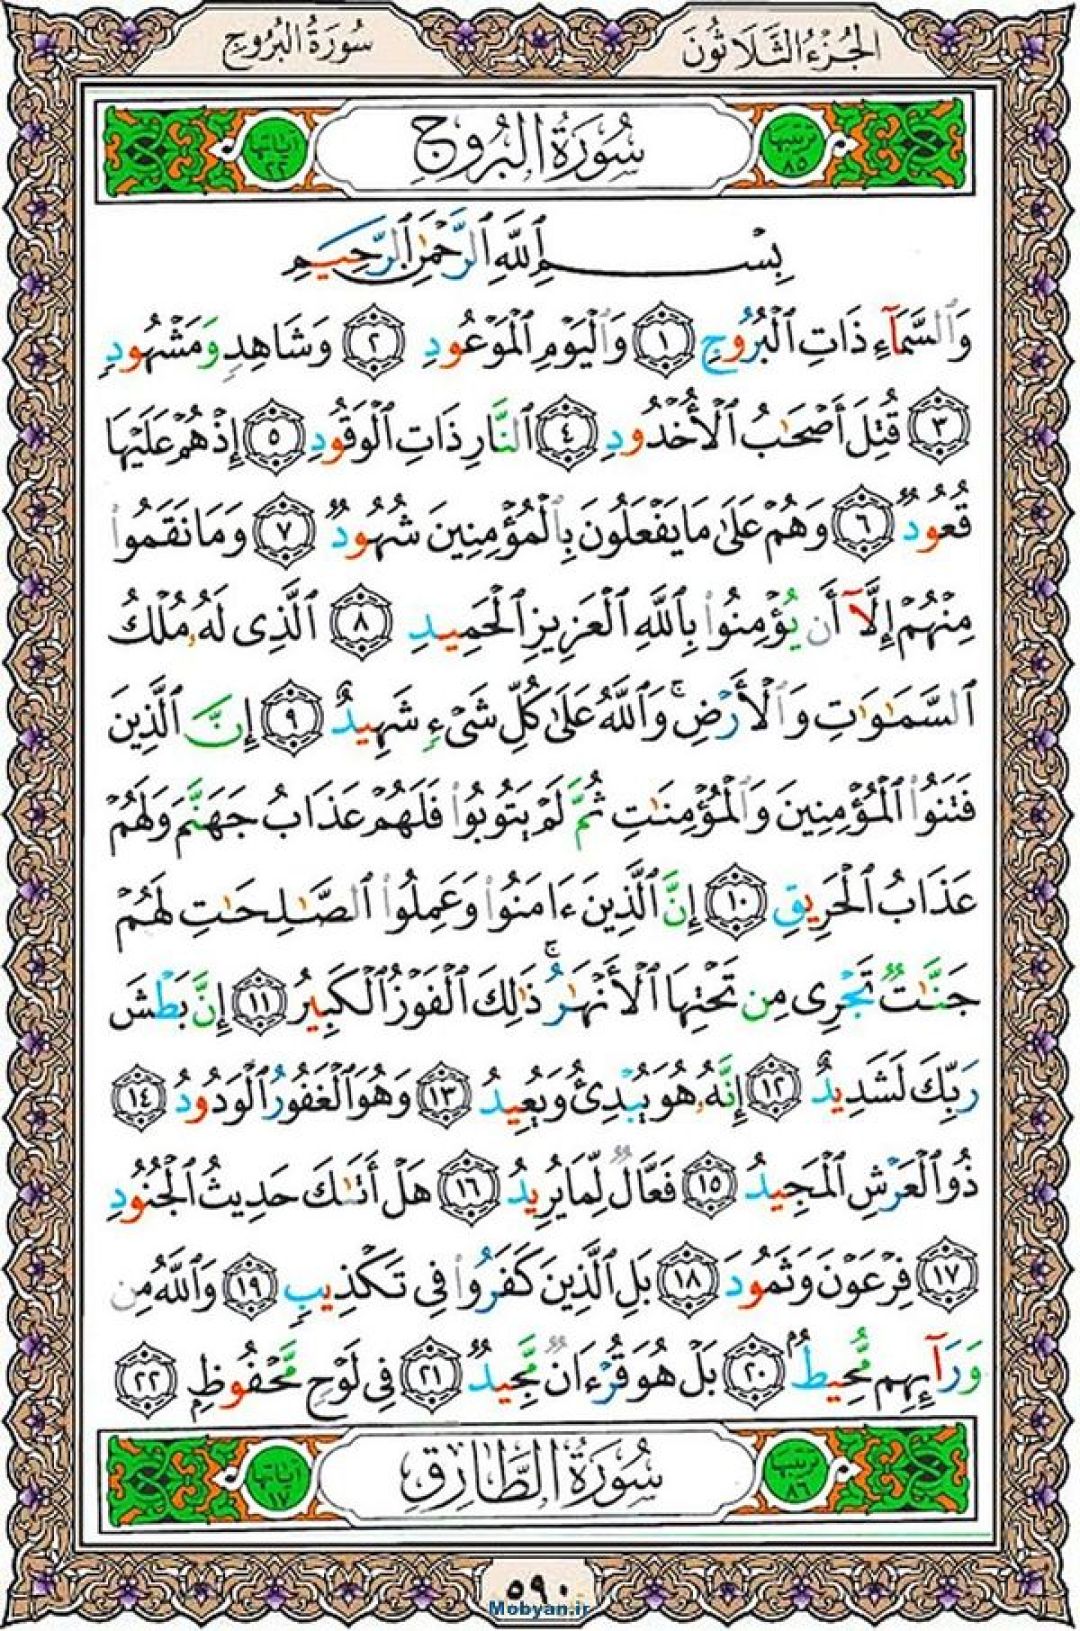 الجُزْءُ الثَّلَاثُونَ
سُورَةُ البُرُوجِ
ترتيبها ٨٥
سُورَةُ البُرُوجِ
آياتها ٢٢
بِسْمِ ٱللَّهِ ٱلرَّحْمَٰنِ ٱلرَّحِيمِ
وَٱلسَّمَآءِ ذَاتِ ٱلْبُرُوجِ ١ وَٱلْيَوْمِ ٱلْمَوْعُودِ ٢ وَشَاهِدٍ وَمَشْهُودٍ
٣ قُتِلَ أَصْحَٰبُ ٱلْأُخْدُودِ ٤ ٱلنَّارِ ذَاتِ ٱلْوَقُودِ ٥ إِذْ هُمْ عَلَيْهَا
قُعُودٌ ٦ وَهُمْ عَلَىٰ مَا يَفْعَلُونَ بِٱلْمُؤْمِنِينَ شُهُودٌ ٧ وَمَا نَقَمُوا۟
مِنْهُمْ إِلَّآ أَن يُؤْمِنُوا۟ بِٱللَّهِ ٱلْعَزِيزِ ٱلْحَمِيدِ ٨ ٱلَّذِى لَهُۥ مُلْكُ
ٱلسَّمَٰوَٰتِ وَٱلْأَرْضِ ۚ وَٱللَّهُ عَلَىٰ كُلِّ شَىْءٍ شَهِيدٌ ٩ إِنَّ ٱلَّذِينَ
فَتَنُوا۟ ٱلْمُؤْمِنِينَ وَٱلْمُؤْمِنَٰتِ ثُمَّ لَمْ يَتُوبُوا۟ فَلَهُمْ عَذَابُ جَهَنَّمَ وَلَهُمْ
عَذَابُ ٱلْحَرِيقِ ١٠ إِنَّ ٱلَّذِينَ ءَامَنُوا۟ وَعَمِلُوا۟ ٱلصَّٰلِحَٰتِ لَهُمْ
جَنَّٰتٌ تَجْرِى مِن تَحْتِهَا ٱلْأَنْهَٰرُ ۚ ذَٰلِكَ ٱلْفَوْزُ ٱلْكَبِيرُ ١١ إِنَّ بَطْشَ
رَبِّكَ لَشَدِيدٌ ١٢ إِنَّهُۥ هُوَ يُبْدِئُ وَيُعِيدُ ١٣ وَهُوَ ٱلْغَفُورُ ٱلْوَدُودُ ١٤
ذُو ٱلْعَرْشِ ٱلْمَجِيدُ ١٥ فَعَّالٌ لِّمَا يُرِيدُ ١٦ هَلْ أَتَىٰكَ حَدِيثُ ٱلْجُنُودِ
١٧ فِرْعَوْنَ وَثَمُودَ ١٨ بَلِ ٱلَّذِينَ كَفَرُوا۟ فِى تَكْذِيبٍ ١٩ وَٱللَّهُ مِن
وَرَآئِهِم مُّحِيطٌۢ ٢٠ بَلْ هُوَ قُرْءَانٌ مَّجِيدٌ ٢١ فِى لَوْحٍ مَّحْفُوظٍۭ ٢٢
ترتيبها ٨٦
سُورَةُ الطَّارِقِ
آياتها ١٧
٥٩٠
Mobyan.ir